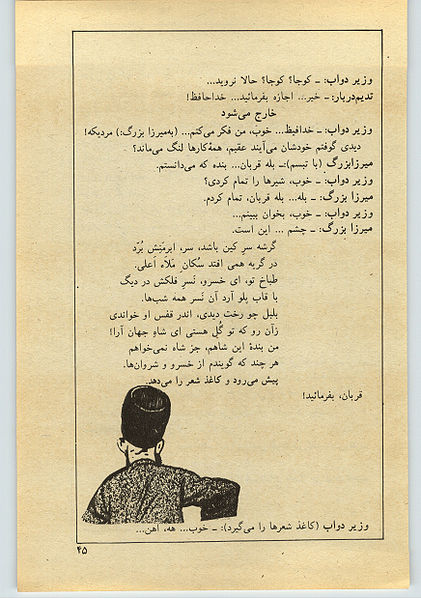 وزیر دواب: ـ کوجا؟ کوجا؟ حالا نروید...
ندیم‌دربار: ـ خیر... اجازه بفرمائید... خداحافظ!
خارج می‌شود
وزیر دواب: ـ خدافیظ... خوب، من فکر می‌کنم... (به‌میرزا بزرگ:) مردیکه!
دیدی گوفتم خودشان می‌آیند عقبم، همهٔ‌کارها لنگ می‌ماند؟
میرزابزرگ (با تبسم):ـ بله قربان... بنده که می‌دانستم.
وزیر دواب: ـ خوب، شیرها را تمام کردی؟
میرزا بزرگ: ـ بله... بله قربان، تمام کردم.
وزیر دواب: ـ خوب، بخوان ببینم...
میرزا بزرگ: ـ چشم ... این است.
گرشه سرِ کین باشد، سر، ابرمَنِش بُرّد
در گریه همی افتد سُکانِ مَلاَء اَعلی.
طباخ تو، ای خسرو، نَسرِ فلکش در دیگ
با قاب پلو آرد آن نَسر همه شب‌ها.
بلبل چو رخت دیدی، اندر قفس او خواندی
زآن رو که تو گُلِ هستی ای شاهِ جهان آرا!
من بندهٔ این شاهم، جز شاه نمی‌خواهم
هر چند که گویندم از خسرو و شروان‌ها.
پیش می‌رود و کاغذ شعر را می‌دهد.
قربان، بفرمائید!
وزیر دواب (کاغذ شعرها را می‌گیرد): ـ خوب... هه، اهن...
۴۵